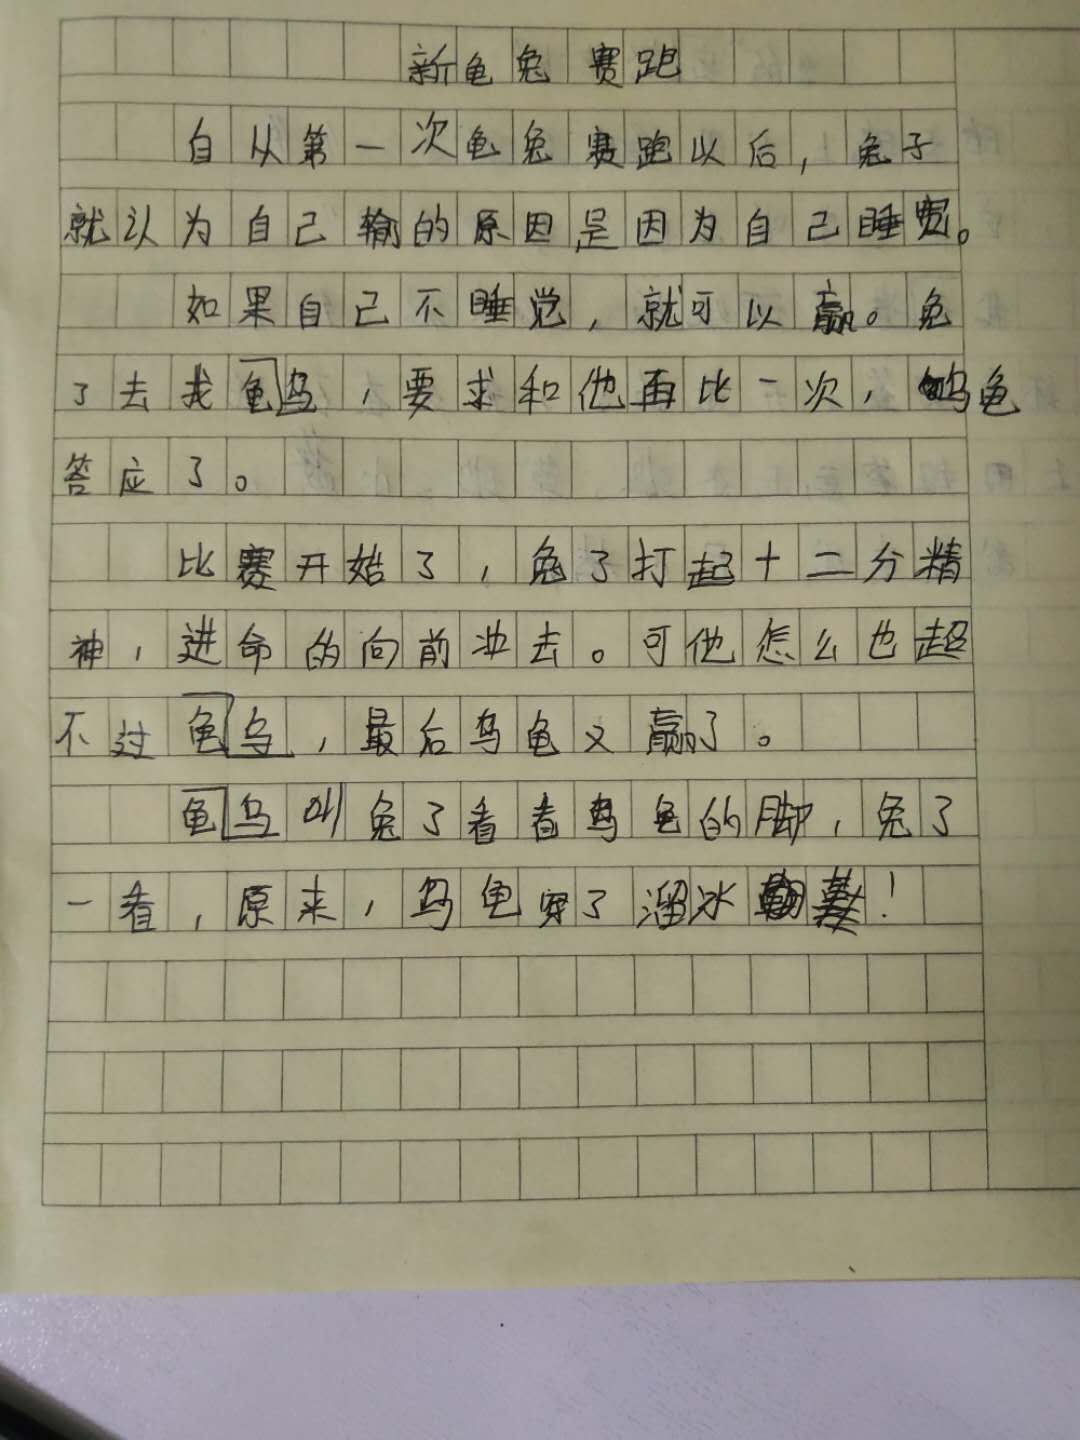 新龟兔赛跑
自从第一次龟兔赛跑以后，兔子
就认为自己输的原因是因为自己睡觉。
如果自己不睡觉，就可以赢。兔
了去找龟乌，要求和他再比一次，乌龟
答应了。
比赛开始了，兔了打起十二分精
神，进命的向前冲去。可他怎么也超
不过龟乌，最后乌龟又赢了。
龟乌叫兔了看看乌龟的脚，兔了
一看，原来，乌龟穿了溜冰！